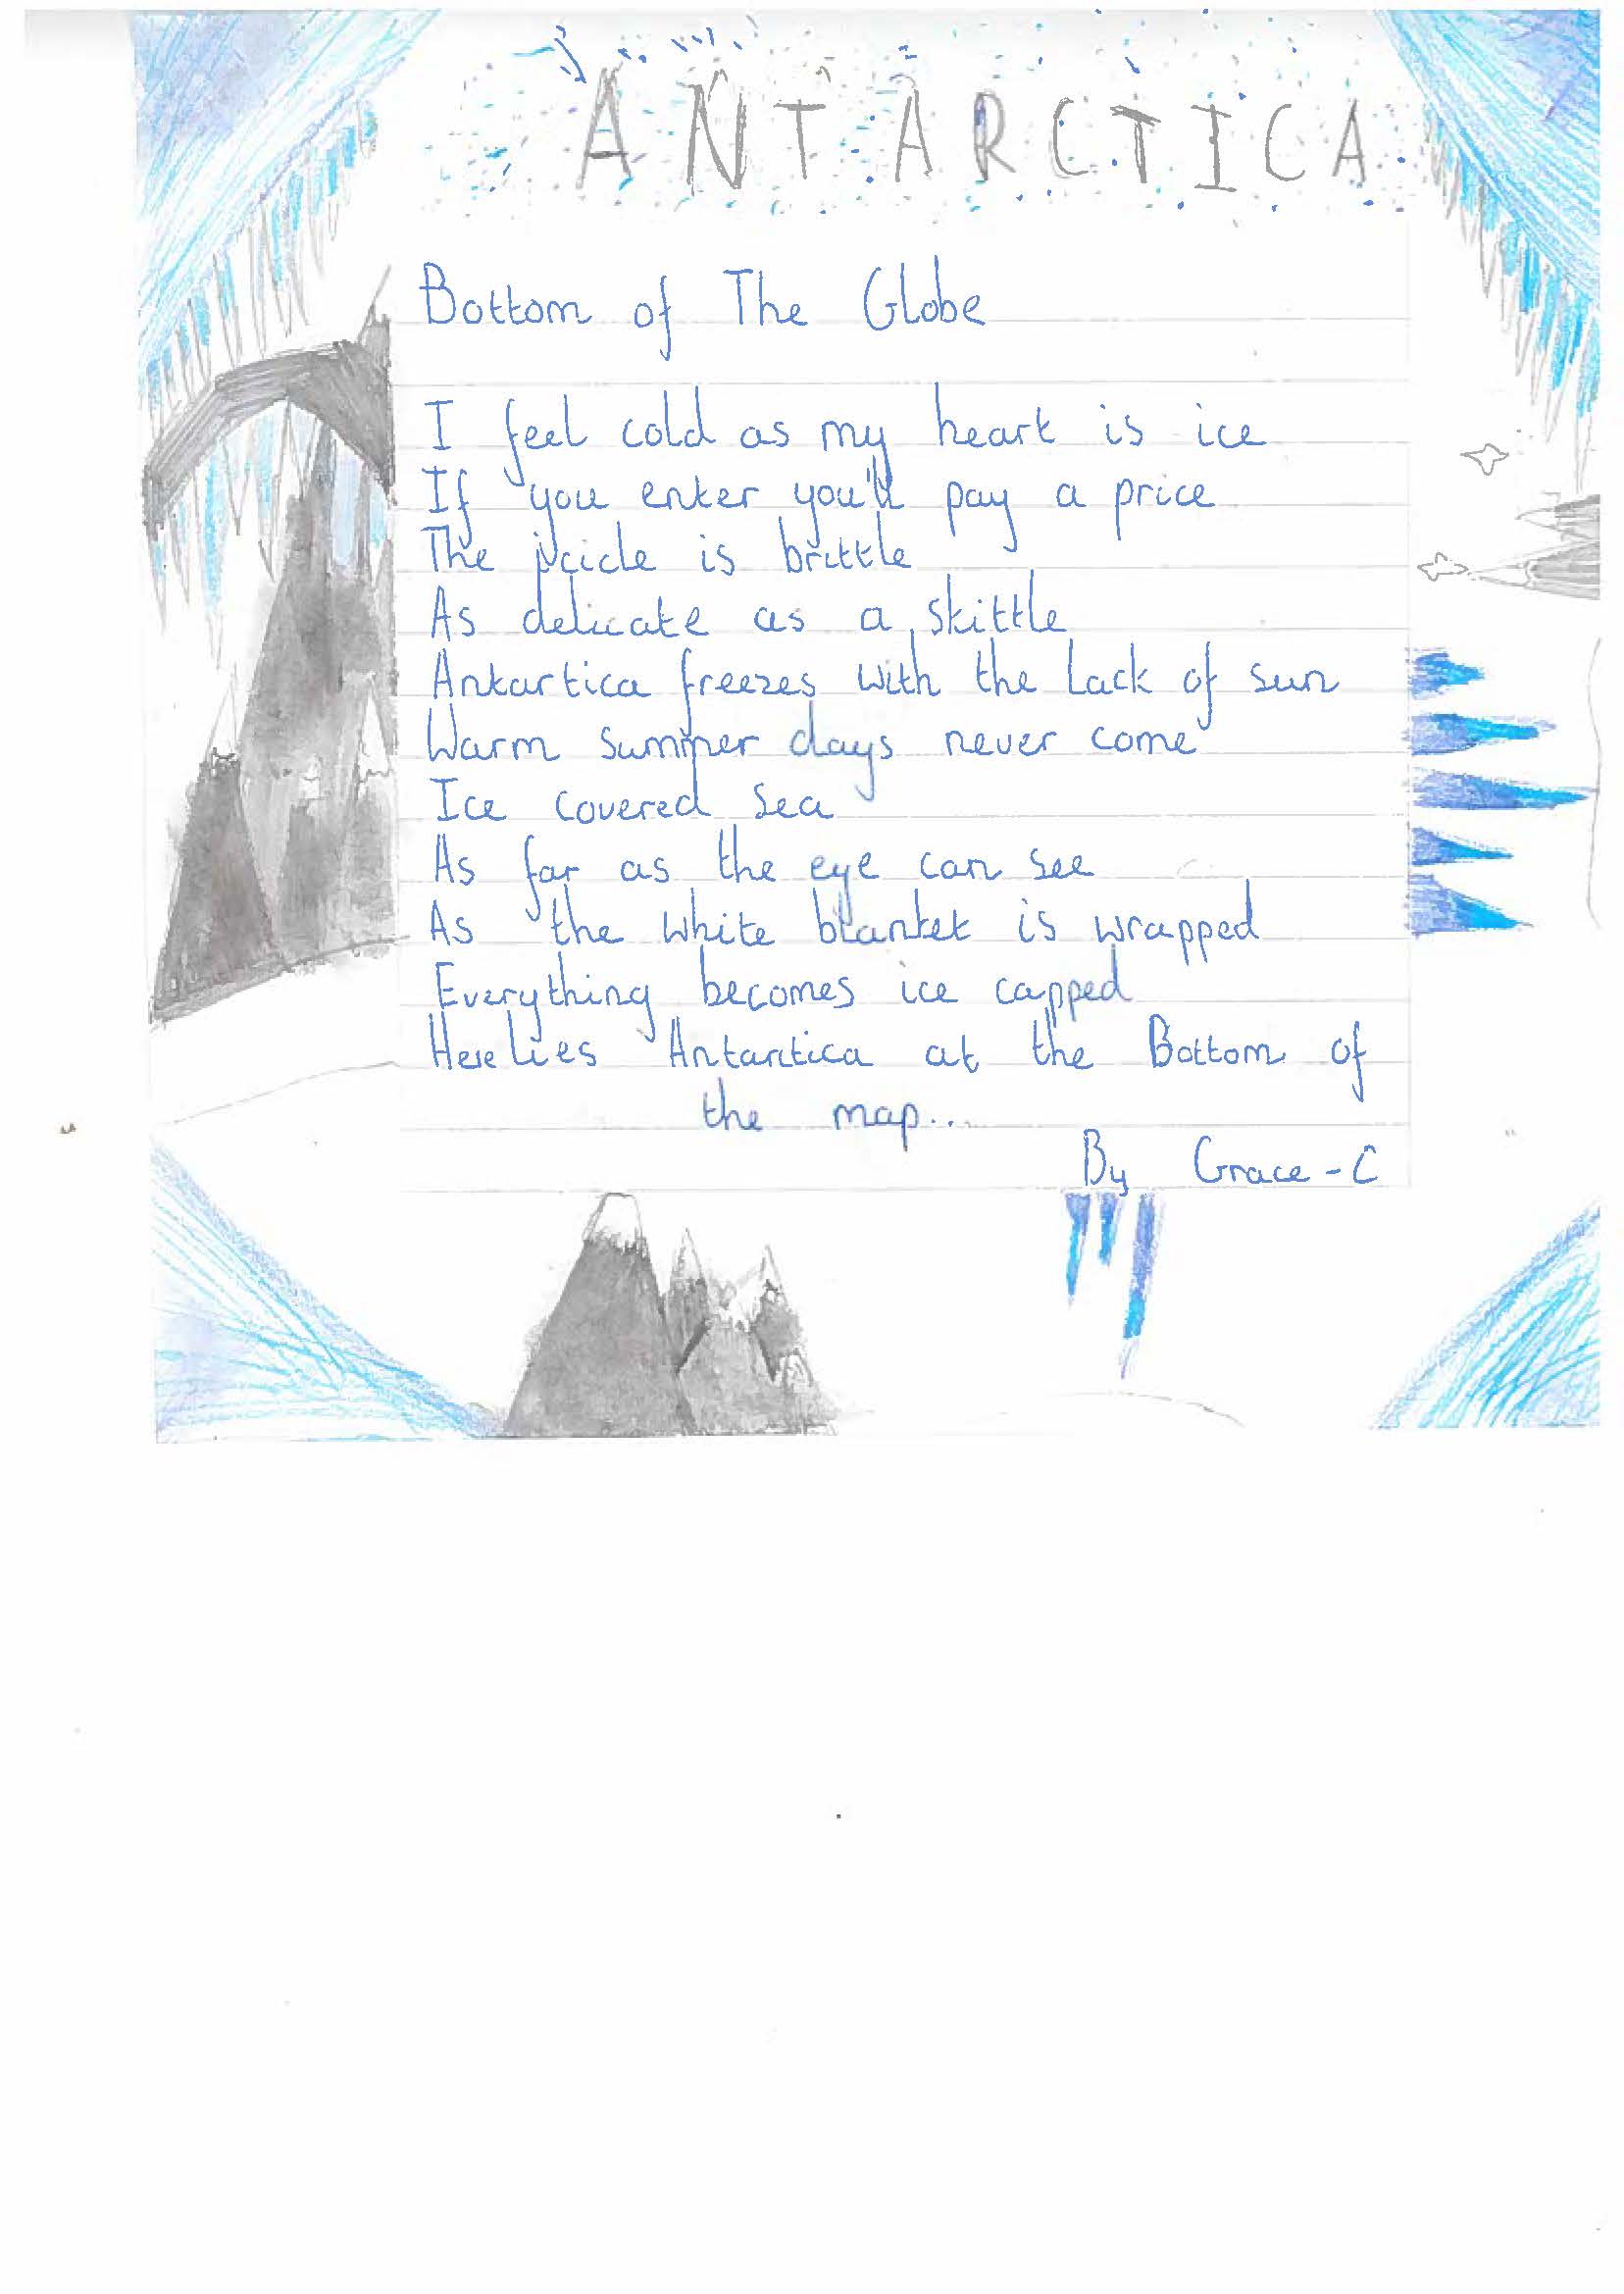 ANTARCTICA
Bottom of The Globe
I feel cold as my heart is ice
If you enter you'll pay a price
The icicle is brittle
As delicate as a skittle
Antartica freezes with the lack of sun
Warm summer days never come
Ice covered sea
As far as the eye can see
As the white blanket is wrapped
Everything becomes ice capped
Here lies Antartica at the Bottom of
the map...
By Grace-C